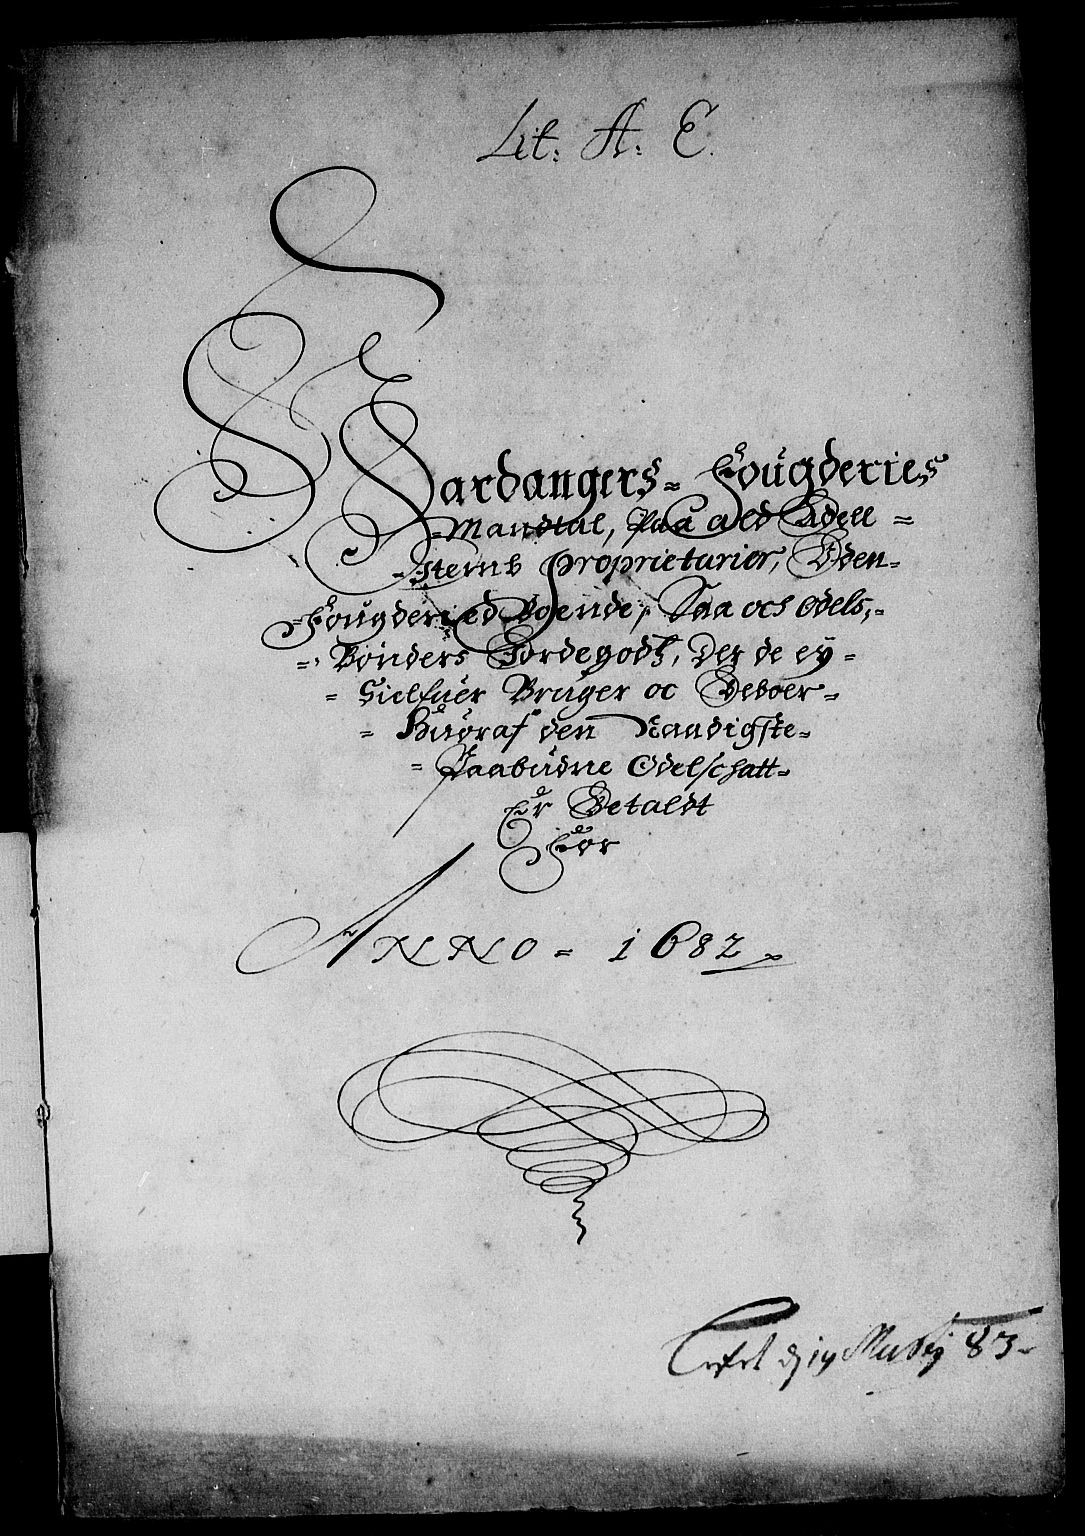 Lit: A: E.
Hardangers= Fougderies
=Mandtal, Paa ald Adell=
=sterns proprietarier, Uden=
=Fougderied Boende, Saa och Odels,=
=Bønders Jordegods, Der de ey=
=Sielfuer Bruger oc Beboer=
=Huoraf den Naadigste=
=Paabudne Odelschatt=
Er Betaldt
For
ANNO = 1682
19 83